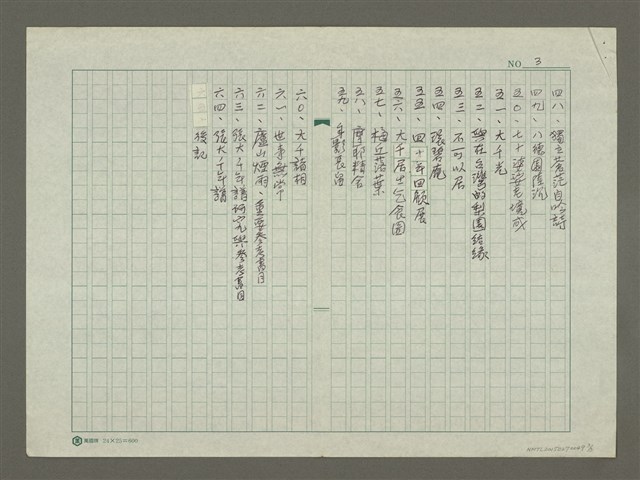 NO 3
四八、獨立蒼茫自吟詩
四九、八德園陸沉
五〇、七十婆娑老境成
五一、大千光
五二、與在台灣的梨園結緣
五三、不可以居
五四、環碧庵
五五、四十年回顧展
五六、大千居士乞食圖
五七、梅丘落葉
五八、摩耶精舍
五九、身影長留
六〇、大千諸相
六一、世事無常
六二、廬山煙雨、重要參考書目
六三、張大千年譜研究與參考書目
六四、張大千年譜
後記
24×25